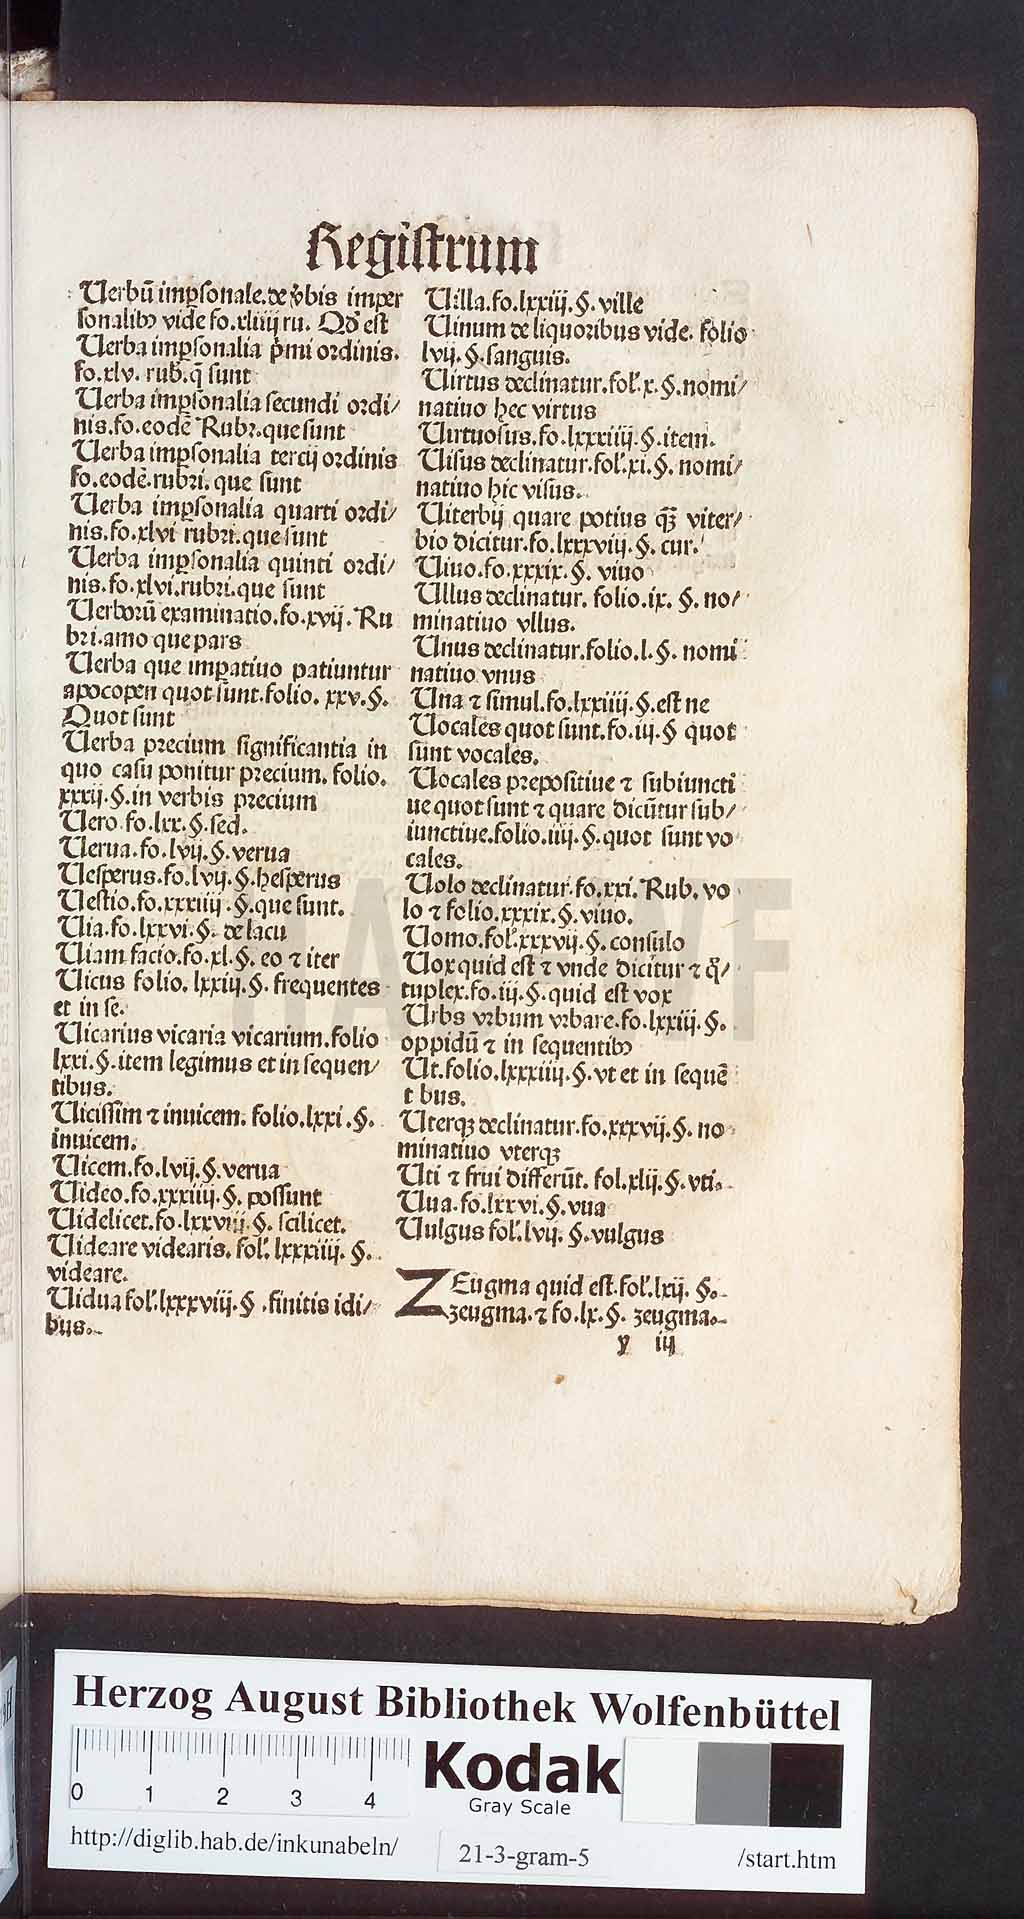 Registrum
Uerbū imꝑsonale.de v̾bis imper
sonalibꝰ vide fo.xliiij ru. Qd̾ est
Uerba imꝑsonalia p̾mi ordinis.
fo.xlv. rub̾.q̄ sunt
Uerba imꝑsonalia secundi ordi/
nis.fo.eodē Rubr.que sunt
Uerba imꝑsonalia tercij ordinis
fo.eodē.rubri. que sunt
Uerba imꝑsonalia quarti ordi/
nis.fo.xlvi rubri.que sunt
Uerba imꝑsonalia quinti ordi/
nis.fo.xlvi.rubri.que sunt
Uerborū examinatio.fo.xvij. Ru
bri.amo que pars
Uerba que imꝑatiuo patiuntur
apocopen quot sunt.folio. xxv.§.
Quot sunt
Uerba precium significantia in
quo casu ponitur precium. folio.
xxxij.§.in verbis precium
Uero.fo.lxx.§.sed.
Uerua.fo.lvij.§.verua
Uesperus.fo.lvij.§.hesperus
Uestio.fo.xxxiiij.§.que sunt.
Uia.fo.lxxvi.§. de lacu
Uiam facio.fo.xl.§. eo ⁊ iter
Uicus folio. lxxiij.§. frequentes
et in se.
Uicarius vicaria vicarium.folio
lxxi.§.item legimus et in sequen/
tibus.
Uicissim ⁊ inuicem. folio.lxxi.§.
inuicem.
Uicem.fo.lvij.§.verua
Uideo.fo.xxxiiij.§. possunt
Uidelicet.fo.lxxviij.§. scilicet.
Uideare videaris. fol̾. lxxxiiij. §.
videare.
Uidua fol̾.lxxxviij.§ .finitis idi/
bus.
Uilla.fo.lxxiij.§. ville
Uinum de liquoribus vide. folio
lvij.§.sanguis.
Uirtus declinatur.fol̾.x.§.nomi/
natiuo hec virtus
Uirtuosus.fo.lxxxiiij.§.item.
Uisus declinatur.fol̾.xi.§. nomi/
natiuo hic visus.
Uiterbij quare potius qꝫ̄ viter/
bio dicitur.fo.lxxxviij.§. cur.
Uiuo.fo.xxxix.§. viuo
Ullus declinatur. folio.ix. §. no/
minatiuo vllus.
Unus declinatur.folio.l.§. nomi
natiuo vnus
Una ⁊ simul.fo.lxxiiij.§.est ne
Uocales quot sunt.fo.iij.§ quot
sunt vocales.
Uocales prepositiue ⁊ subiuncti
ue quot sunt ⁊ quare dicūtur sub/
iunctiue.folio.iiij.§.quot sunt vo
cales.
Uolo declinatur.fo.xxi. Rub. vo
lo ⁊ folio.xxxix.§.viuo.
Uomo.fol̾.xxxvij.§. consulo
Uox quid est ⁊ vnde dicitur ⁊ q̾/
tuplex.fo.iij.§.quid est vox
Urbs vrbum vrbare.fo.lxxiij.§.
oppidū ⁊ in sequentibꝰ
Ut.folio.lxxxiiij.§.vt et in sequē
t bus.
Uterqꝫ declinatur.fo.xxxvij.§. no
minatiuo vterqꝫ
Uti ⁊ frui differūt. fol.xlij.§.vti.
Uua.fo.lxxvi.§.vua
Uulgus fol̾.lvij. §.vulgus
ZEugma quid est.fol̾.lxij. §.
zeugma.⁊ fo.lx.§. zeugma.
y iij
HAB WF
Herzog August Bibliothek Wolfenbüttel
0 1 2 3 4
Kodak
Gray Scale
http://diglib.hab.de/inkunabeln/
21-3-gram-5
/start.htm